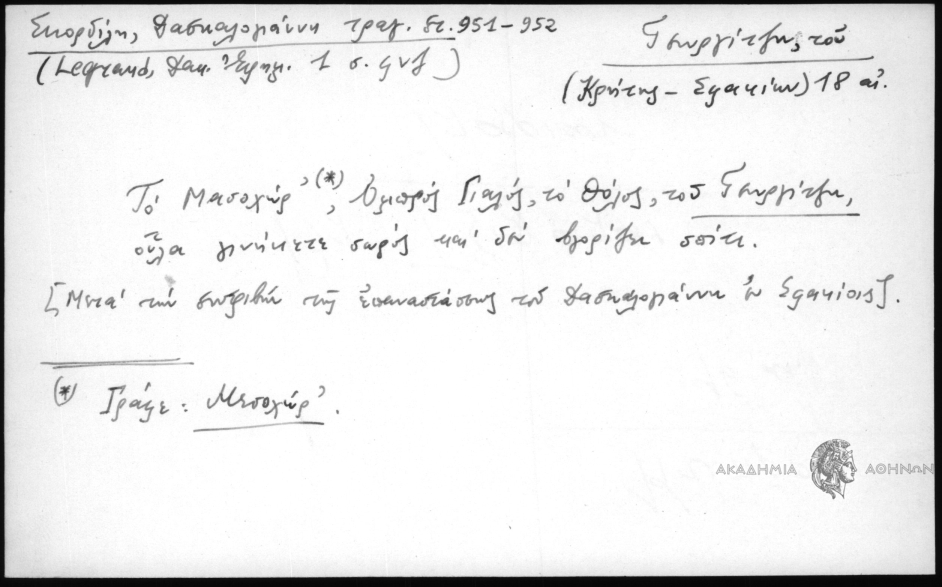 Σκορδίλη, Δασκαλογιάννη τραγ. στ. 951-952
(Legrand, Δακ. Ἐκρηγ. 1 σ.
Γεωργίτζη, τοῦ
(Κρήτης - Σφακίων) 18 αἰ.
Τό Μασοχώρ'(*), Ὀμπρός Γιαλός, τό Θόλος, τοῦ Γεωργίτζη,
οὗλα γινήκετε σωρός καί δέν γνορίζει σπίτι.
[Μετά τήν συντριβήν τῆς ἐπαναστάσεως τοῦ Δασκαλογιάννη ἐν Σφακίοις].
(*) Γράφε: Μεσοχώρ'.
ΑΚΑΔΗΜΙΑ ΑΘΗΝΩΝ